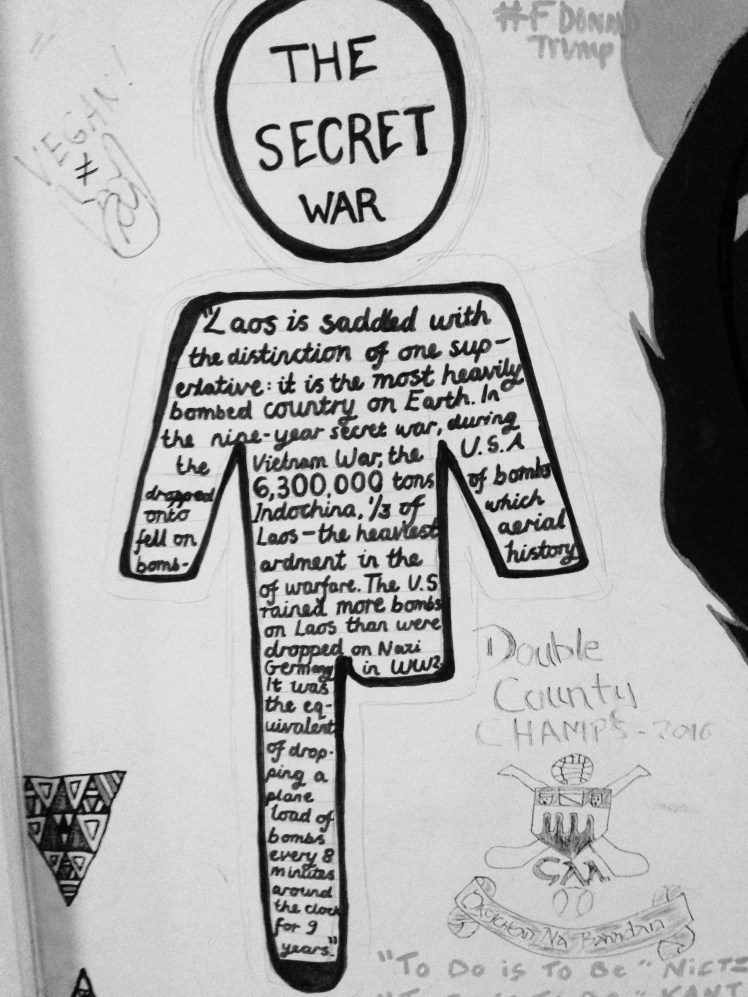 #F DONALD
Trump
VEGAN!
#
THE
SECRET
WAR
"Laos is saddled with
the distinction of one sup-
erlative: it is the most heavily
bombed country on Earth. In
the nine-year secret war, during
the Vietnam War, the U.S.A
dropped 6,300,000 tons of bombs
onto Indochina, 1/3 of which
fell on Laos - the heaviest aerial
bomb- ardment in the history
of warfare. The U.S
rained more bombs
on Laos than were
dropped on Nazi
Germany in WW2
It was
the eq-
uivalent
of drop-
ping a
plane
load of
bombs
every 8
minutes
around
the clock
for 9
years."
Double
County
CHAMPS - 2016
GAA
Na
"To Do is To Be" NIETZ
"To KANT